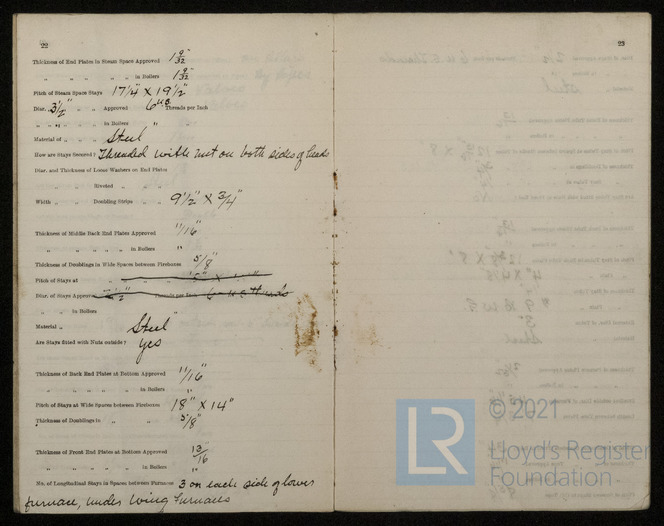 22
Thickness of End Plates in Steam Space Approved 1 9/32"
" " " " " in Boilers 1 9/32"
Pitch of Steam Space Stays 17¼" X 19½"
Diar. 3½" " " " Approved 6 U.S. Threads per Inch
" " " " in Boilers "
Material of " " " Steel
How are Stays Secured? Threaded with nut on both sides of heads
Diar. and Thickness of Loose Washers on End Plates
" " Riveted " "
Width " " Doubling Strips " " 9½" X ¾"
Thickness of Middle Back End Plates Approved 11/16"
" " " " " in Boilers "
Thickness of Doublings in Wide Spaces between Fireboxes 5/8"
Pitch of Stays at
Diar. of Stays Approved Threads per Inch 6-U.S. threads
" " in Boilers "
Material " Steel
Are Stays fitted with Nuts outside? Yes
Thickness of Back End Plates at Bottom Approved 11/16"
" " " " " in Boilers "
Pitch of Stays at Wide Spaces between Fireboxes 18" X 14"
Thickness of Doublings in " " 5/8"
Thickness of Front End Plates at Bottom Approved 13/16"
" " " " " in Boilers "
No. of Longitudinal Stays in Spaces between Furnaces 3 on each side of lower
furnace, under wing furnaces
23
LR
© 2021
Lloyd's Register
Foundation